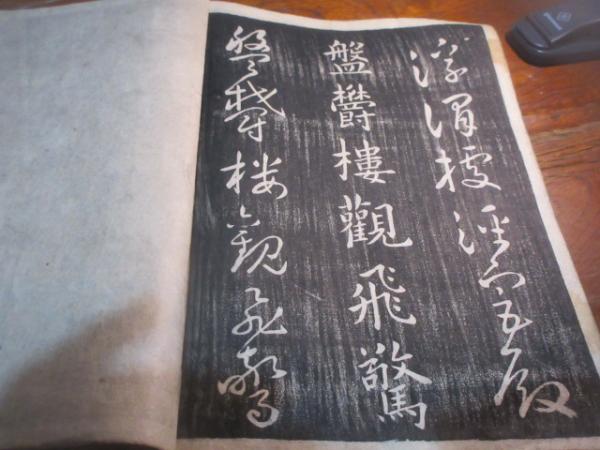 浮渭據涇宮殿
盤鬱樓觀飛驚
盤鬱樓觀飛驚